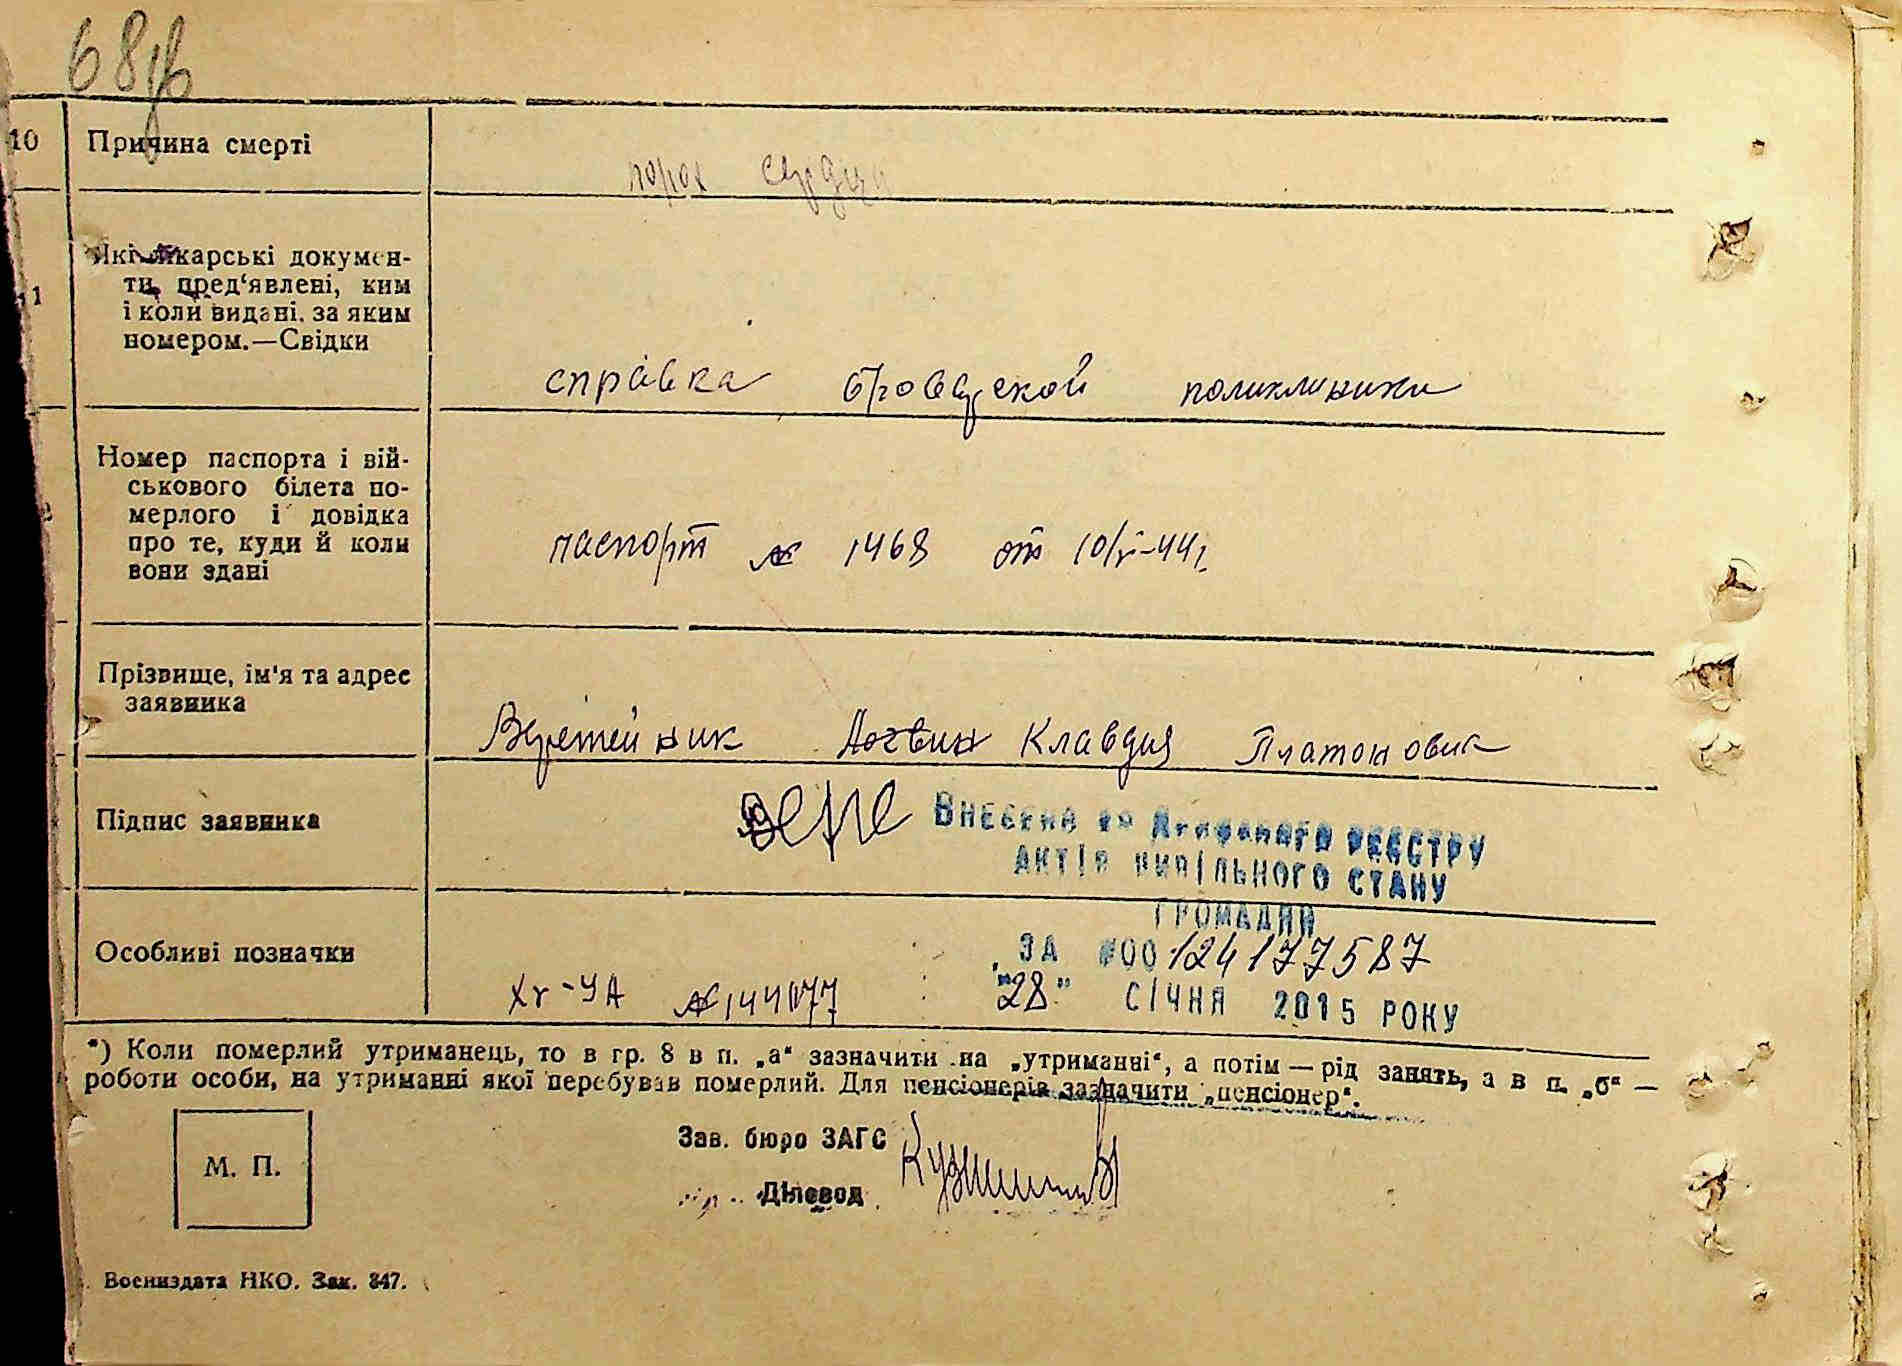 68
10 Причина смерті
порок сердца
11 Які лікарські докумен-
ти пред'явлені, ким
і коли видані, за яким
номером.—Свідки
справка поликлиники
Номер паспорта і вій-
ськового білета по-
мерлого і довідка
про те, куди й коли
вони здані
паспорт № 1468 от 10/V-44г.
Прізвище, ім'я та адрес
заявника
Клавдия
Підпис заявника
Внесено до Державного реєстру
актів цивільного стану
громадян
Особливі позначки
за №00124177587
"28" січня 2015 року
№ 144077
*) Коли померлий утриманець, то в гр. 8 в п. „а“ зазначити на „утриманні“, а потім — рід занять, а в п. „б“ —
роботи особи, на утриманні якої перебував померлий. Для пенсіонерів зазначити „пенсіонер“.
Зав. бюро ЗАГС
М. П.
Діловод
Воениздата НКО. Зак. 347.